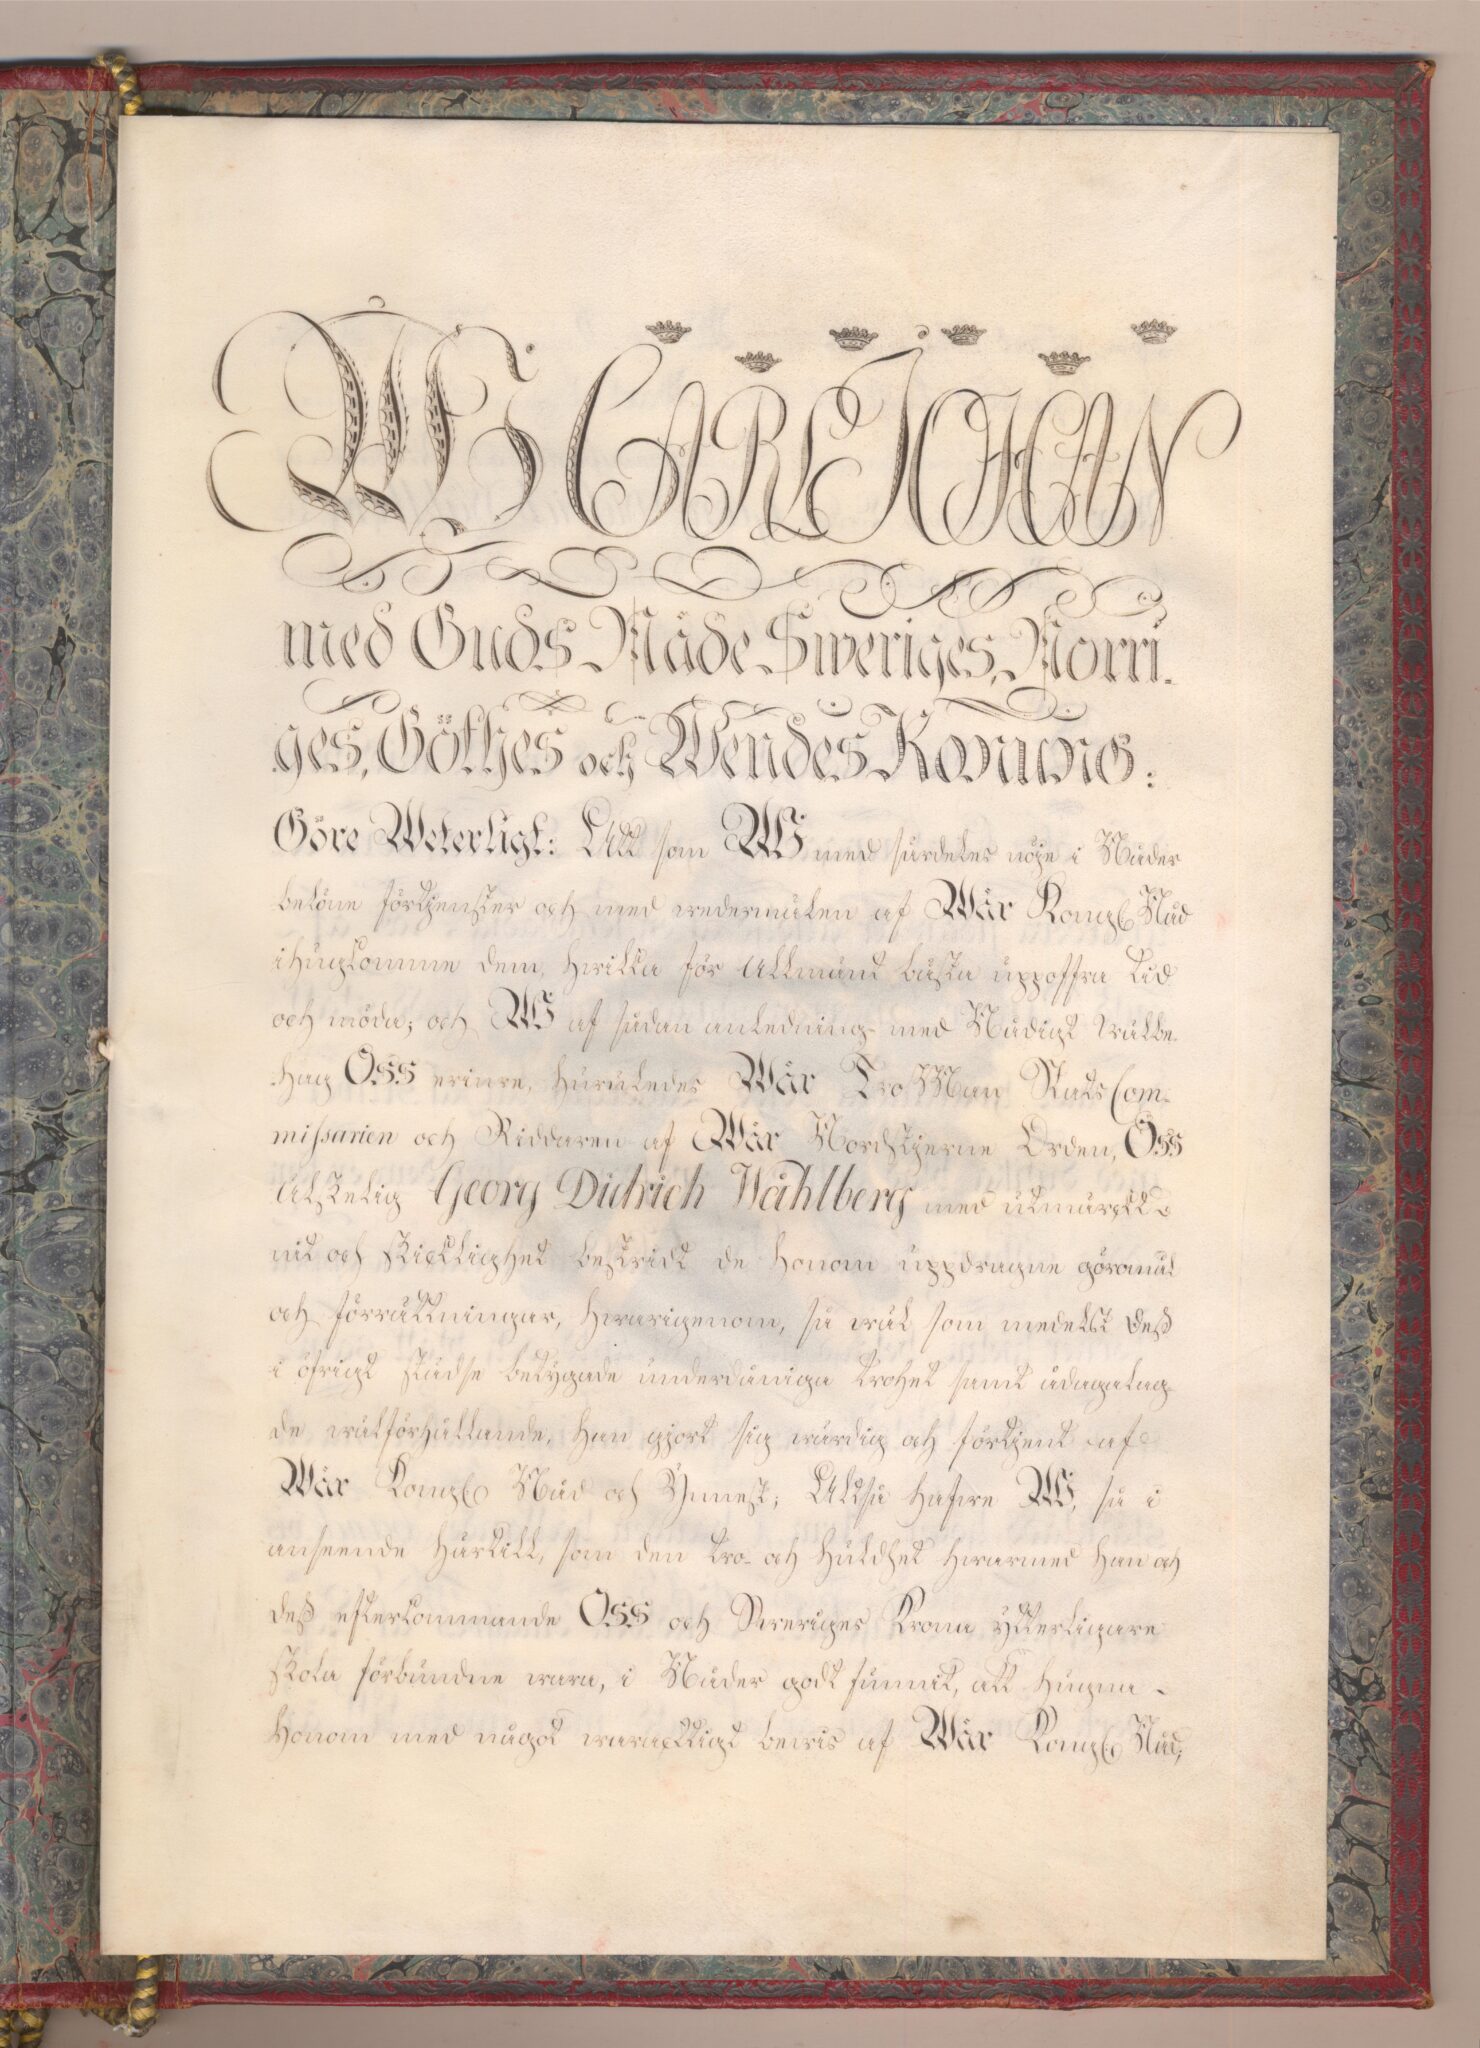 Wi CARL JOHAN
med Guds Nåde Sweriges, Norri-
ges, Göthes och Wendes Konung:
Göre Weterligt: Att som Wi med särdeles nöje i Nåder
belöne förtjenster och med wedermälen af Wår Kongl. Nåd
ihugkomme dem, hwilka för Allmänt bästa uppoffra tid
och möda; och Wi af sådan anledning med Nådigt wälbe-
hag OSS erinre, huruledes Wår Tro Man Stats Com-
missarien och Riddaren af Wår Nordstjerne Orden, OSS
Älskelig Georg Didrich Wåhlberg med utmärkt
nit och skicklighet bestridt de honom uppdragne göromål
och förrättningar, hwarigenom, så wäl som medelst deß
i öfrigt städse betygade underdåniga trohet samt ådagalag-
de wälförhållande, han gjort sig wärdig och förtjent af
Wår Kongl. Nåd och Ynnest; Altså hafwe Wi, så i
anseende härtill, som den tro- och huldhet hwarmed han och
deß efterkommande OSS och Sweriges Krona ytterligare
skola förbundne wara, i Nåder godt funnit, att hugna
honom med något waraktigt bewis af Wår Kongl. Nåd;